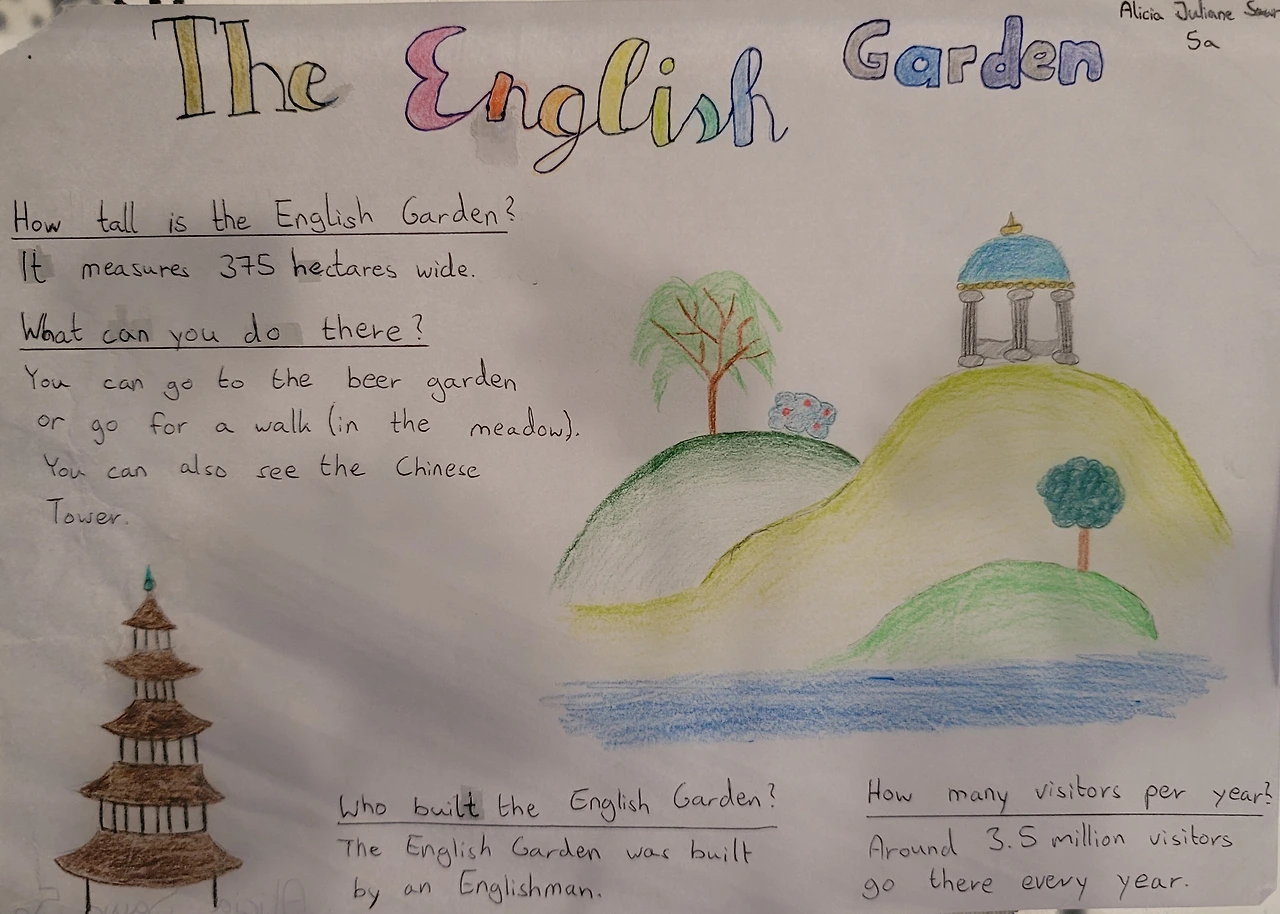 The English Garden
Alicia Juliane
5a
How tall is the English Garden?
It measures 375 hectares wide.
What can you do there?
You can go to the beer garden
or go for a walk (in the meadow).
You can also see the Chinese
Tower.
Who built the English Garden?
The English Garden was built
by an Englishman.
How many visitors per year?
Around 3.5 million visitors
go there every year.